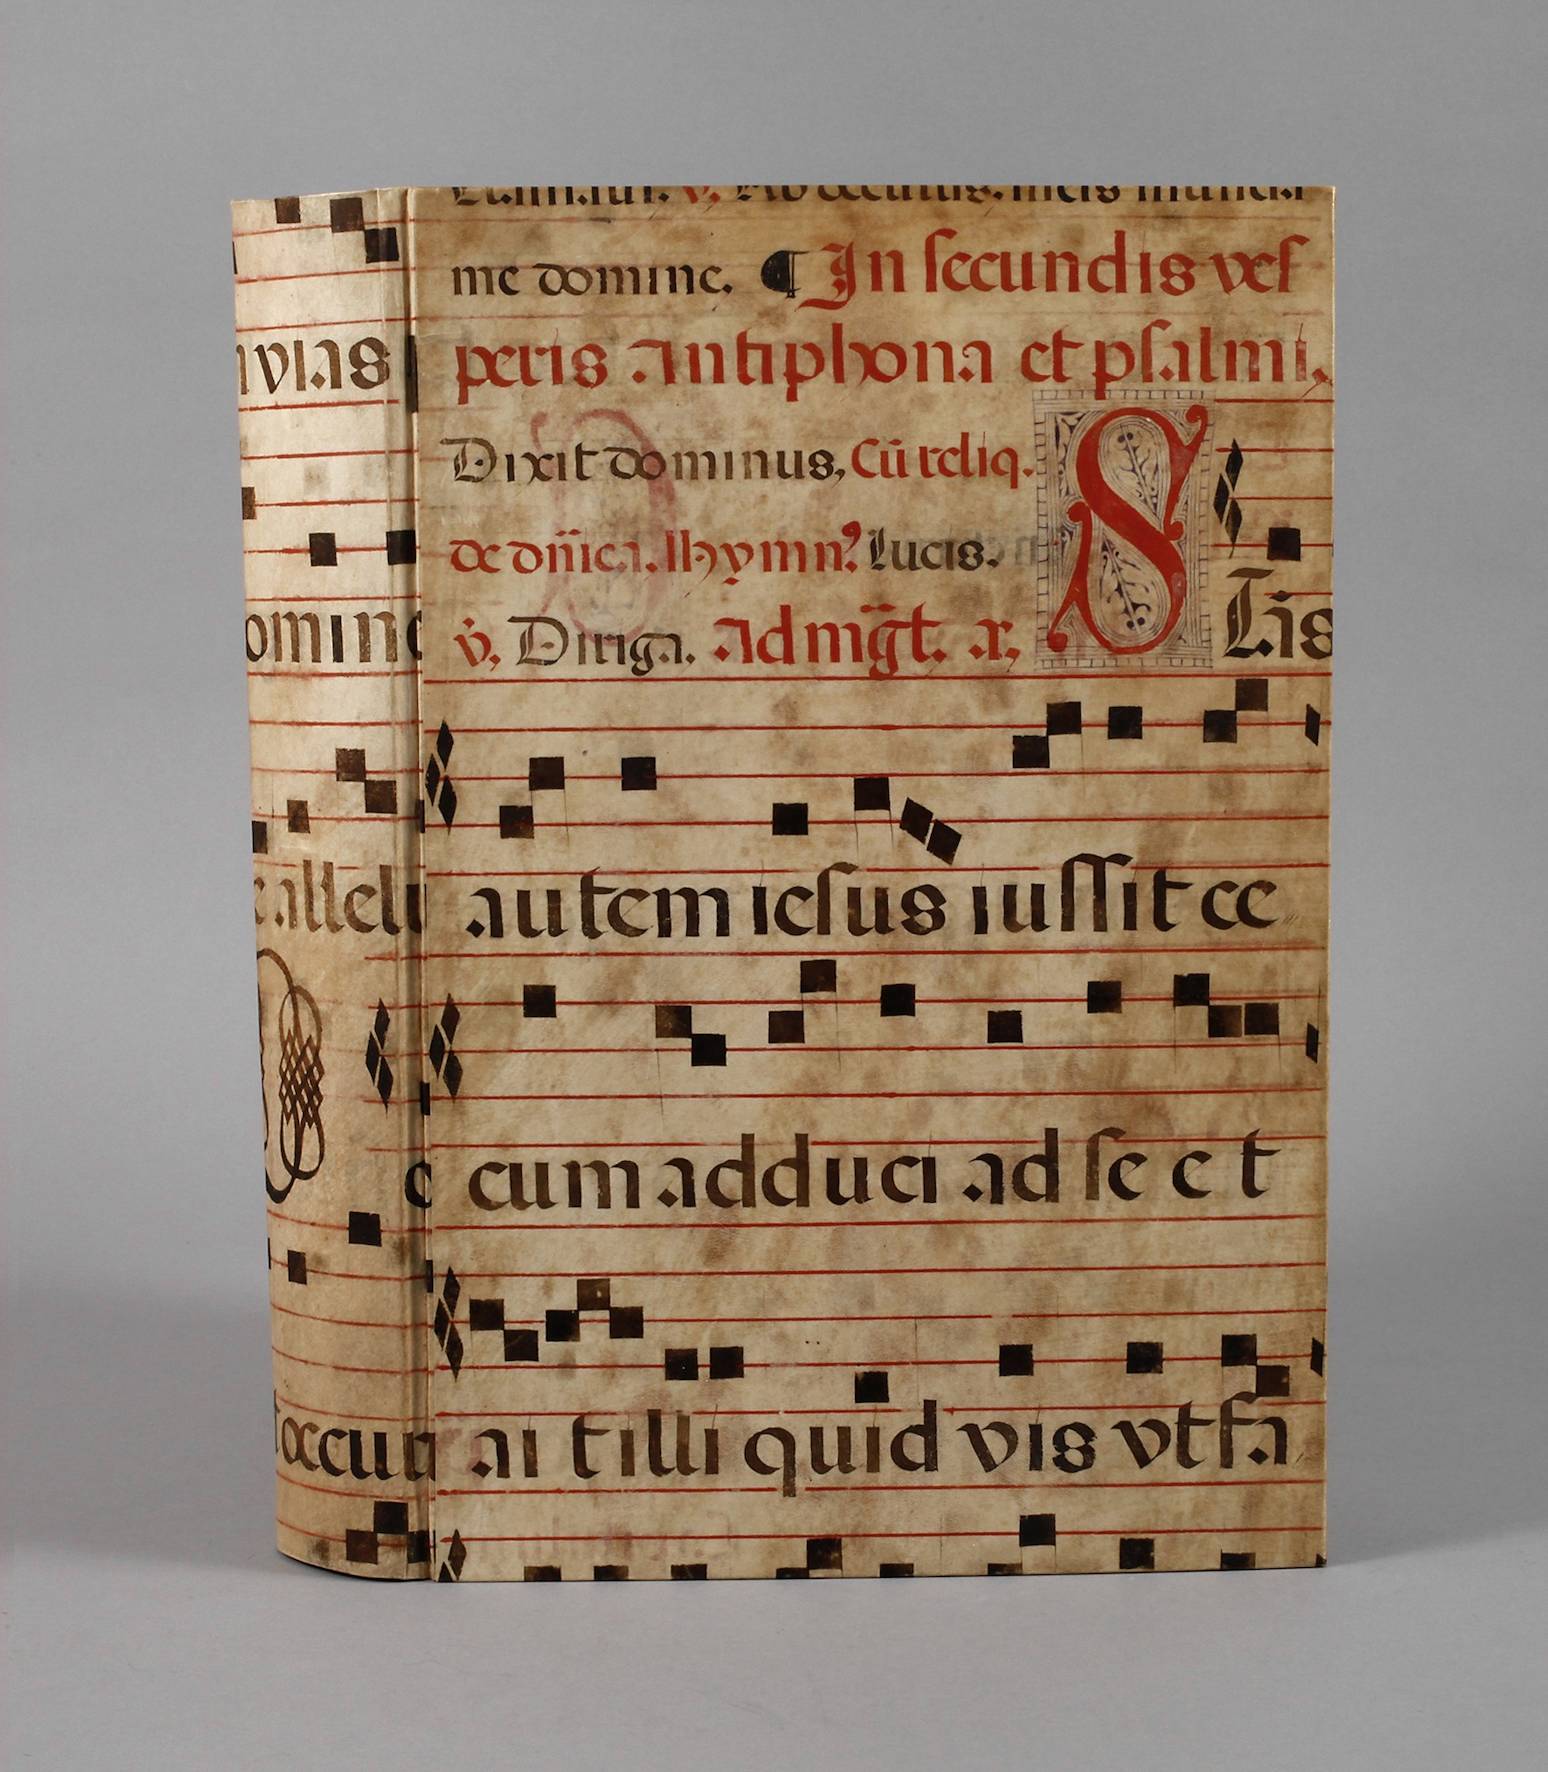 me domine. ¶ In secundis vesp
peris antiphona et psalmi,
Dixit dominus, Cū reliq.
de dn̄ica. Hymn⁹. Lucis.
v̇, Diriga. Ad mg̃t. a,
S
Tās
autem iesus iussit ce
cum adduci ad se et
ai t illi quid vis vt fa
vias
omine
e allelu
c
t occur